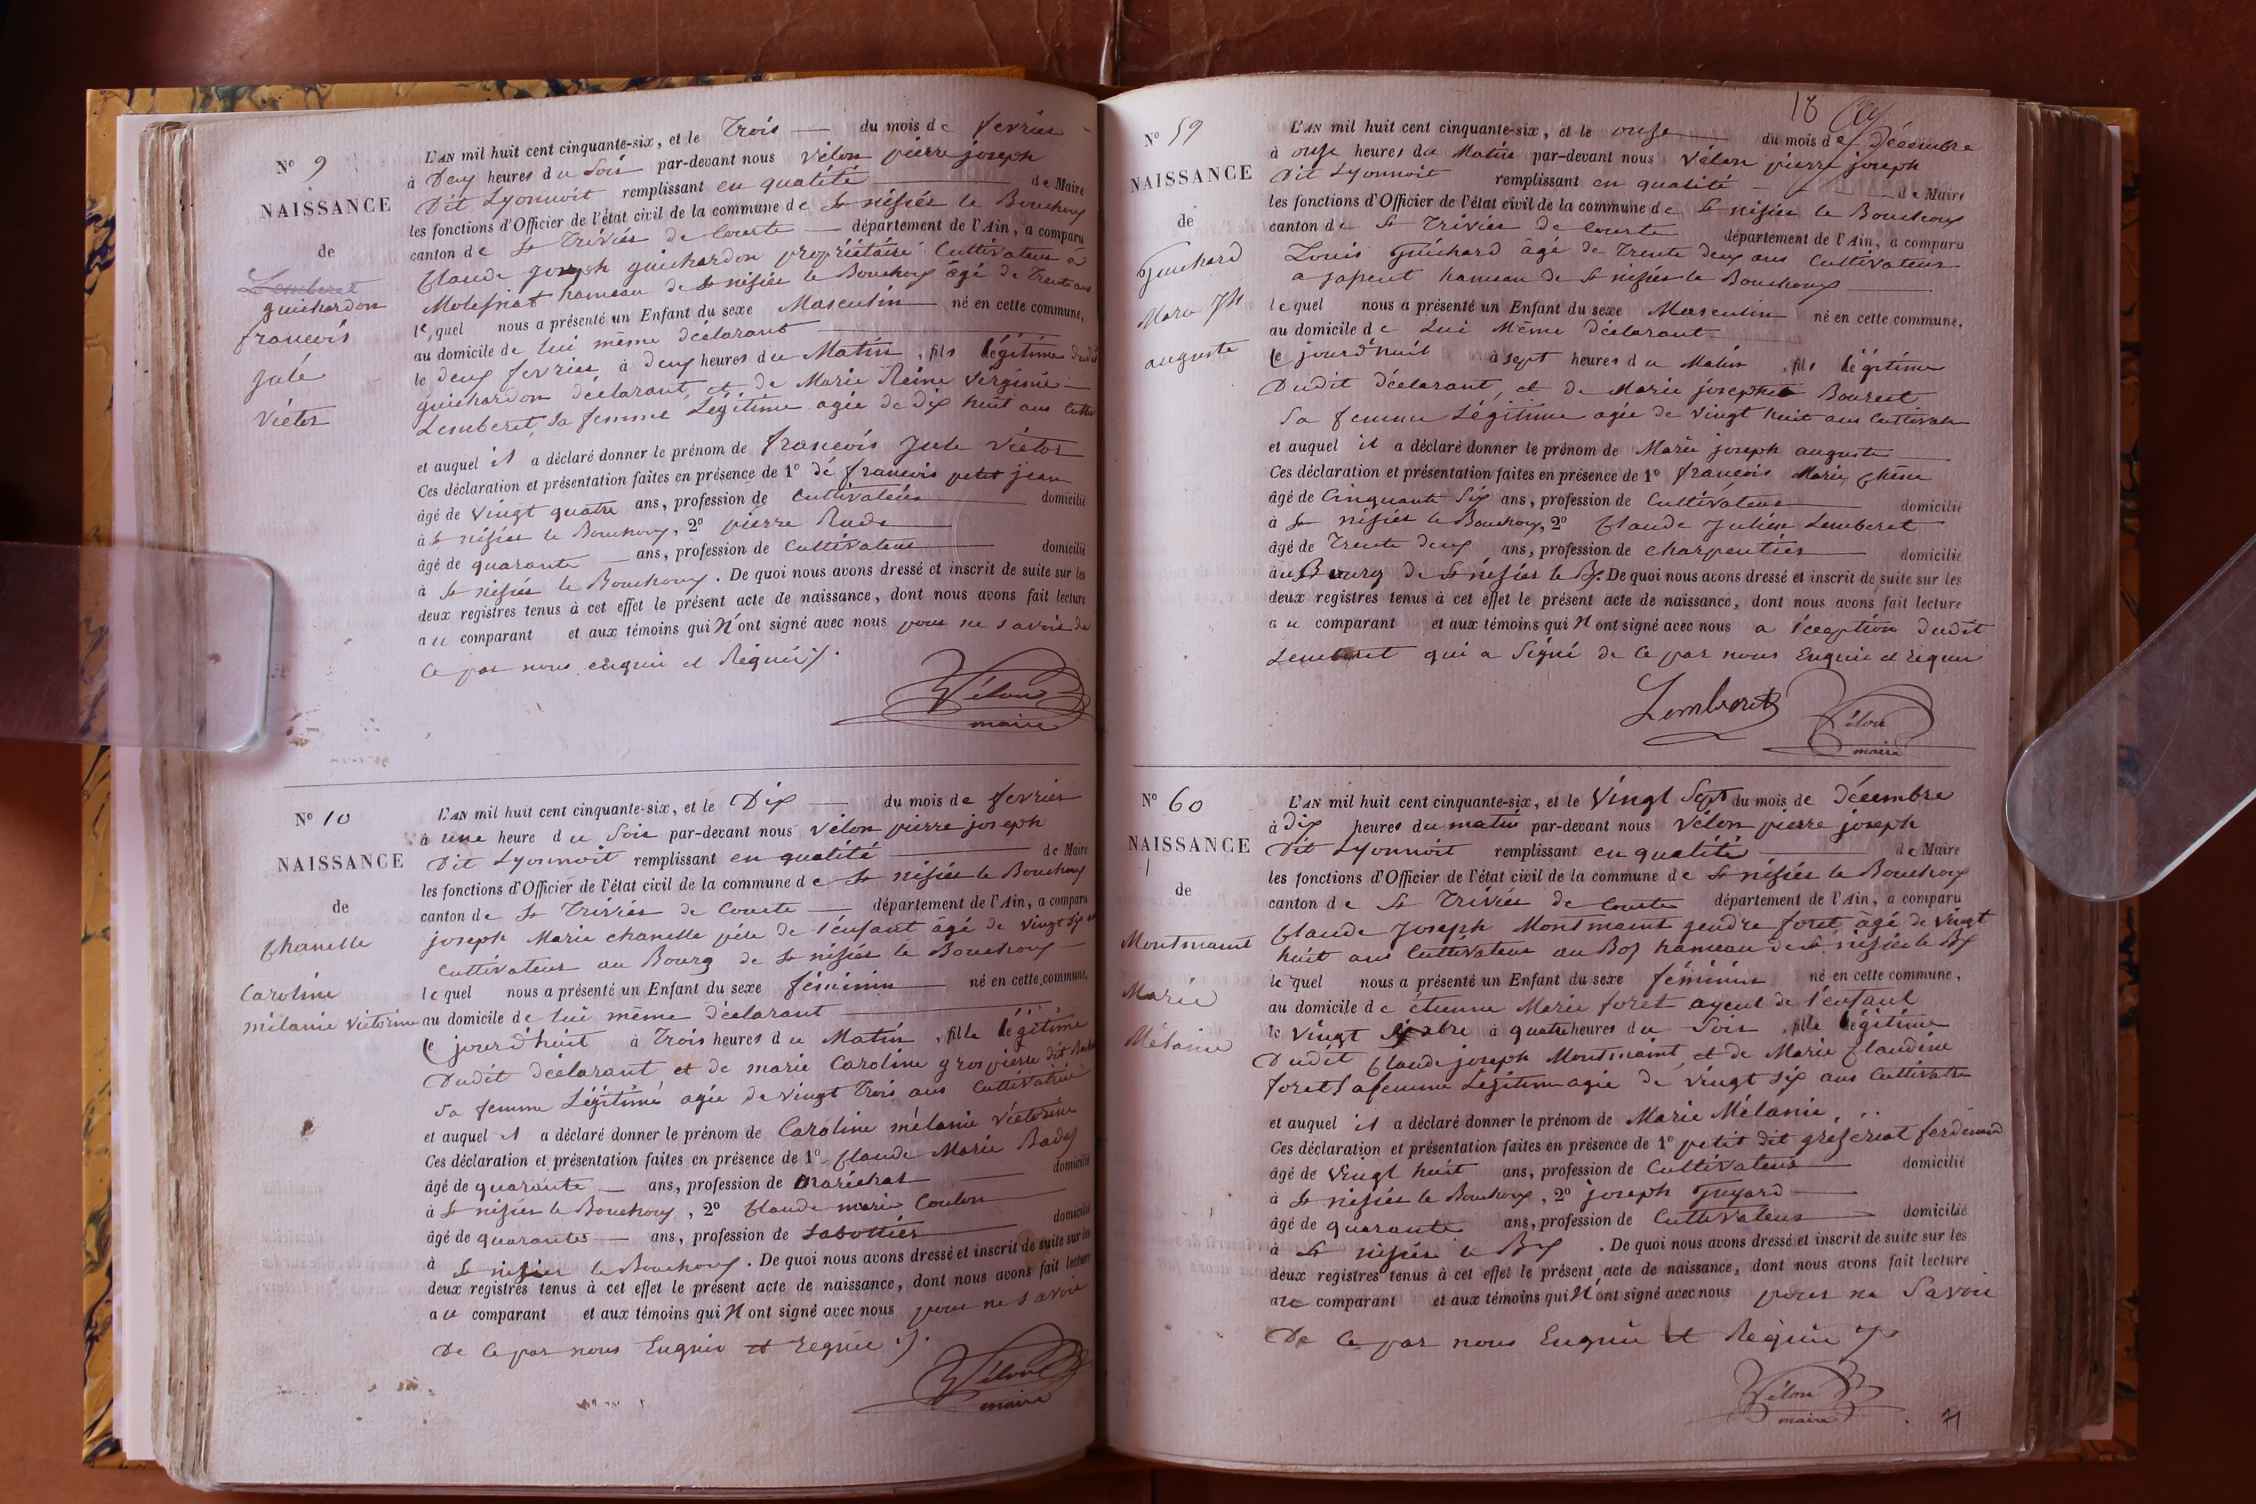 N° 9
NAISSANCE
de
Lemberet
guichardon
francois
Jule
Victor
L'AN mil huit cent cinquante-six, et le Trois — du mois de fevrier
à Deux heures du Soir par-devant nous Vélon pierre joseph
Dit Lyonnoit remplissant en qualité — de Maire
les fonctions d'Officier de l'état civil de la commune de St nisier le Bouchoux
canton de St Trivier de Courte — département de l'Ain, a comparu
Claude joseph guichardon propriétaire Cultivateur a
Molesriat hameau de St nisier le Bouchoux âgé de Trente ans
lequel nous a présenté un Enfant du sexe Masculin né en cette commune,
au domicile de lui même déclarant
le deux fevrier à deux heures du Matin, fils légitime dudit
guichardon déclarant, et de Marie Reine Vergénie
Lemberet, Sa femme Légitime agée de dix huit ans Culti
et auquel il a déclaré donner le prénom de francois Jule Victor
Ces déclaration et présentation faites en présence de 1° de francois petit jean
âgé de vingt quatre ans, profession de Cultivateur domicilié
à St nisier le Bouchoux, 2° pierre Rude
âgé de quarante — ans, profession de Cultivateur domicilié
à St nisier le Bouchoux. De quoi nous avons dressé et inscrit de suite sur les
deux registres tenus à cet effet le présent acte de naissance, dont nous avons fait lecture
au comparant et aux témoins qui N'ont signé avec nous pour ne savoir de
Ce par nous enquis et Réquis
Vélon
maire
N° 10
NAISSANCE
de
Chanelle
Caroline
mélanie Victorine
L'AN mil huit cent cinquante-six, et le Dix — du mois de fevrier
à une heure du Soir par-devant nous Vélon pierre joseph
Dit Lyonnoit remplissant en qualité — de Maire
les fonctions d'Officier de l'état civil de la commune de St nisier le Bouchoux
canton de St Trivier de Courte — département de l'Ain, a comparu
joseph Marie chanelle pére de l'enfant âgé de vingt six ans
Cultivateur au Bourg de St nisier le Bouchoux
lequel nous a présenté un Enfant du sexe féminin né en cette commune,
au domicile de lui même déclarant
Ce jourd'huit à Trois heures du Matin, fille légitime
Dudit déclarant et de marie Caroline grospierre dit
Sa femme Légitime agée de vingt Trois ans Cultivatrice
et auquel il a déclaré donner le prénom de Caroline mélanie Victorine
Ces déclaration et présentation faites en présence de 1° Claude Marie Badoj
âgé de quarante — ans, profession de Maréchal domicilié
à St nisier le Bouchoux, 2° Claude marie Coulon
âgé de quarante — ans, profession de Sabottier domicilié
à St nisier le Bouchoux. De quoi nous avons dressé et inscrit de suite sur les
deux registres tenus à cet effet le présent acte de naissance, dont nous avons fait lecture
au comparant et aux témoins qui N ont signé avec nous pour ne savoir
De Ce par nous Enquis et requis
Vélon
maire
18
N° 59
NAISSANCE
de
Guichard
Marie Jh
auguste
L'AN mil huit cent cinquante-six, et le onze du mois de décembre
à onze heures du Matin par-devant nous Vélon pierre joseph
Dit Lyonnoit remplissant en qualité — de Maire
les fonctions d'Officier de l'état civil de la commune de St nisier le Bouchoux
canton de St Trivier de Courte département de l'Ain, a comparu
Louis Guichard âgé de Trente deux ans Cultivateur
a japeut hameau de St nisier le Bouchoux
lequel nous a présenté un Enfant du sexe Masculin né en cette commune,
au domicile de Lui Même Déclarant
Ce jourd'huit à sept heures du Matin, fils légitime
Dudit déclarant, et de Marie josephte Bourest
Sa femme Légitime agée de vingt huit ans Cultivatr
et auquel il a déclaré donner le prénom de Marie joseph auguste
Ces déclaration et présentation faites en présence de 1° francois Marie Chêne
âgé de Cinquante Six ans, profession de Cultivateur domicilié
à St nisier le Bouchoux, 2° Claude Julien Lemberet
âgé de Trente deux ans, profession de charpentier domicilié
au Bourg de St nisier le Bx. De quoi nous avons dressé et inscrit de suite sur les
deux registres tenus à cet effet le présent acte de naissance, dont nous avons fait lecture
au comparant et aux témoins qui N ont signé avec nous a l'éception dudit
Lemberet qui a Signé de Ce par nous Enquis et requis
Lemberet
Vélon
maire
N° 60
NAISSANCE
de
Montmaint
Marie
Mélanie
L'AN mil huit cent cinquante-six, et le Vingt Sept du mois de décembre
à dix heures du matin par-devant nous Vélon pierre joseph
Dit Lyonnoit remplissant en qualité — de Maire
les fonctions d'Officier de l'état civil de la commune de St nisier le Bouchoux
canton de St Trivier de Courte département de l'Ain, a comparu
Claude Joseph Montmaint gendre foret âgé de vingt
huit ans Cultivateur au Boj hameau de St nisier le Bx
lequel nous a présenté un Enfant du sexe féminin né en cette commune,
au domicile de étienne Marie foret ayeul de l'enfant
le vingt Six xbre à quatre heures du Soir, fille légitime
Dudit Claude joseph Montmaint, et de Marie Claudine
foret Sa femme Légitime agée de vingt Six ans Cultivatr
et auquel il a déclaré donner le prénom de Marie Mélanie,
Ces déclaration et présentation faites en présence de 1° petit dit gréferiat ferdinand
âgé de Vingt huit ans, profession de Cultivateur domicilié
à St nisier le Bouchoux, 2° joseph Guyard
âgé de quarante ans, profession de Cultivateur domicilié
à St nisier le Bx. De quoi nous avons dressé et inscrit de suite sur les
deux registres tenus à cet effet le présent acte de naissance, dont nous avons fait lecture
au comparant et aux témoins qui N'ont signé avec nous pour ne Savoir
De Ce par nous Enquis et Réquis
Vélon
maire